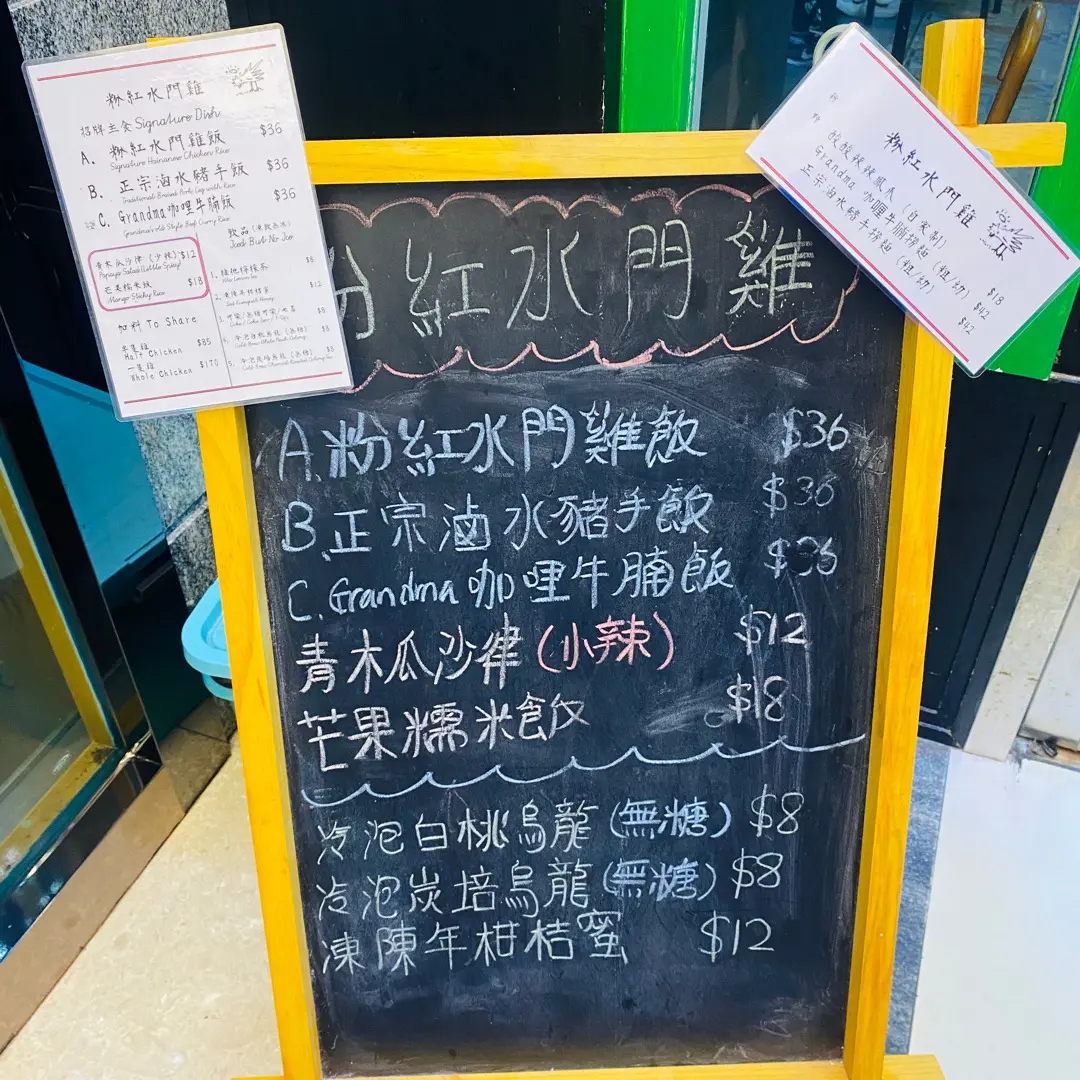 粉紅水門雞
招牌主食 Signature Dish
A. 粉紅水門雞飯 $36
Signature Hainanese Chicken Rice
B. 正宗滷水豬手飯 $36
Traditional Braised Pork Leg with Rice
C. Grandma咖哩牛腩飯 $36
Grandma's old Style Beef Curry Rice
青木瓜沙律 (少辣) $12
Papaya Salad (Little Spicy)
芒果糯米飯 $18
Mango Sticky Rice
加料 To Share
半隻雞 $85
Half Chicken
一隻雞 $170
Whole Chicken
Just But No Ice
1. 維他檸檬茶 $8
2. $12
3. $8
4. 冷泡白桃烏龍 $8
5. $8
粉紅水門雞
酸酸辣辣鳳爪 (自家制) $18
Grandma咖哩牛腩撈麵 (粗/幼) $42
正宗滷水豬手撈麵 (粗/幼) $42
粉紅水門雞
A.粉紅水門雞飯 $36
B.正宗滷水豬手飯 $36
C.Grandma咖哩牛腩飯 $36
青木瓜沙律(小辣) $12
芒果糯米飲 $18
冷泡白桃烏龍(無糖) $8
冷泡炭培烏龍(無糖) $8
凍陳年柑桔蜜 $12